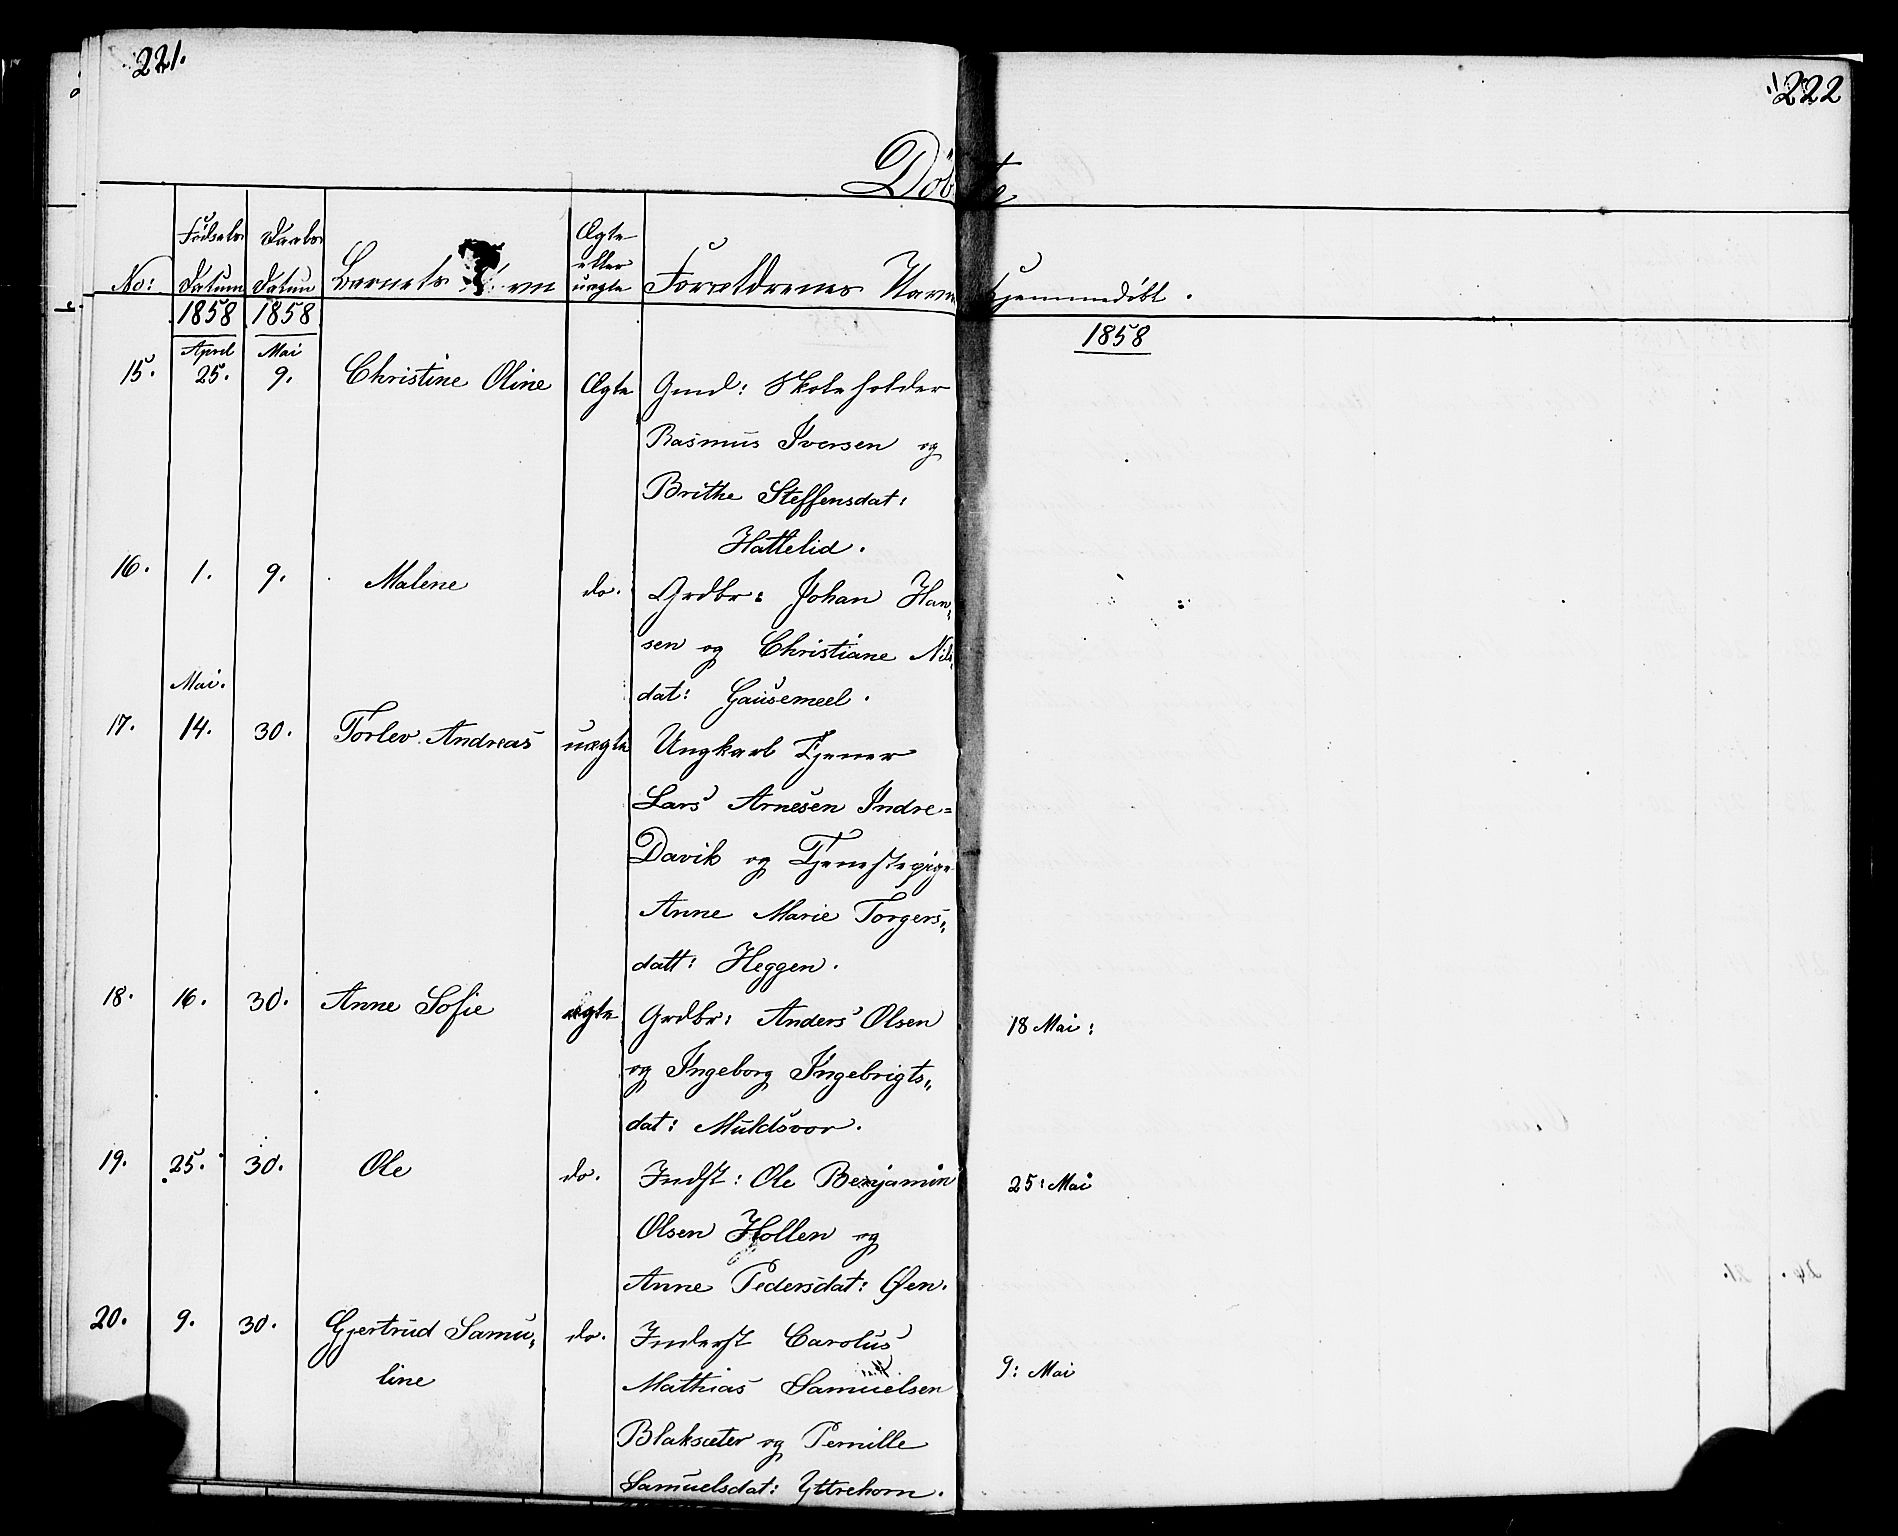 221.
222
Döbte
No:
Födsels Datum
Daabs Datum
Barnets
Ægte eller uægte
Forældrenes Navn
Hjemmedöbt.
1858 1858 1858
April Mai
15. 25. 9. Christine Oline Ægte Gmd: Skoleholder
Rasmus Iversen og
Brithe Steffensdat:
Hattelid.
16. 1. 9. Malene do. Grdbr: Johan Han„
sen og Christiane Nils„
dat: Gausemeel.
Mai.
17. 14. 30. Torlev Andreas uægte Ungkarl Tjener
Lars Arnesen Indre=
Davik og Tjenestepige
Anne Marie Torgers„
datt: Heggen.
18. 16. 30. Anne Sofie ægte Grdbr: Anders Olsen 18 Mai:
og Ingeborg Ingebrigts„
dat: Muldsvor.
19. 25. 30. Ole do. Indst: Ole Benjamin 25: Mai
Olsen Hollen og
Anne Pedersdat: Øen.
20. 9. 30. Gjertrud Samu„ do. Inderst Carolus 9: Mai
line Mathias Samuelsen
Blaksæter og Pernille
Samuelsdat: Yttrehorn.